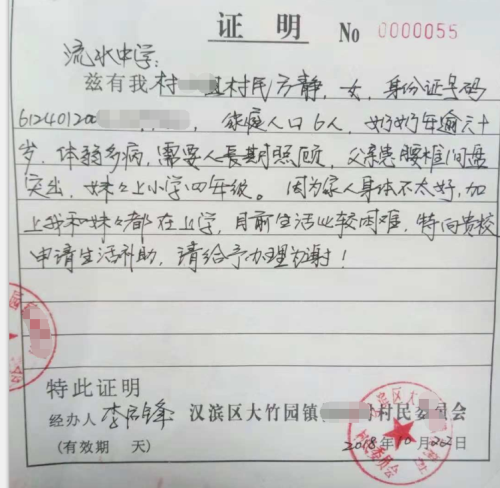 证 明 No 0000055
流水中学：
兹有我村 村民方静，女，身份证号码
612401200 ， 家庭人口6人，奶奶年逾六十
岁，体弱多病，需要人长期照顾，父亲患腰椎间盘
突出，妹々上小学四年级。因为家人身体不太好，加
上我和妹々都在上学，目前生活比较困难，特向贵校
申请生活补助，请给予办理为谢！
特此证明
经办人 李 锋 汉滨区大竹园镇 村民委员会
(有效期 天) 2018年10月26日